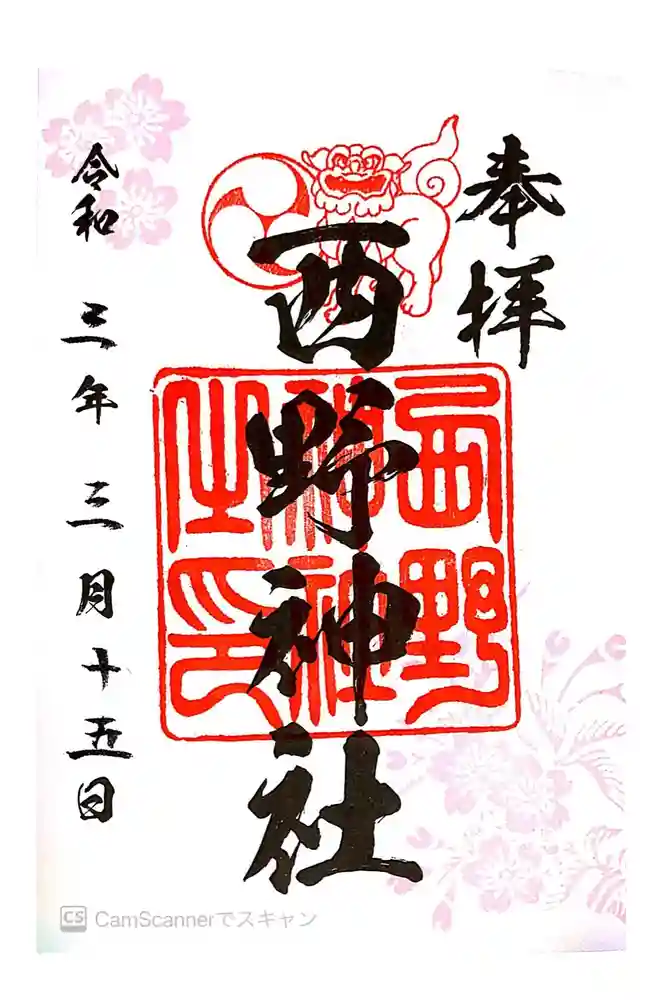 奉拝
西野神社
西野神社之印
令和三年三月十五日
CS CamScannerでスキャン